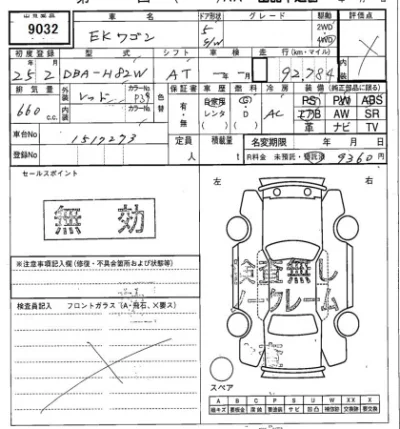 9032
車名
EKワゴン
ドア形状
5
S/W
グレード
駆動
2WD
4WD
評価点
初度登録
25年2月
型式
DBA-H82W
シフト
AT
車検
年 月
走行(km・マイル)
92,784
内装
排気量
660 c.c.
外装
レッド
カラーNo
P39
カラーNo
色替
保証書
有・無
車歴
自家用
レンタ
( )
燃料
G
D
( )
冷房
AC
装備(純正部品に限る)
PS PW ABS
エアB AW SR
革 ナビ TV
車台No
1517273
定員
人
積載量
t
名変期限 年 月 日
R料金 未預託・預託済 9360円
登録No
セールスポイント
無効
左 右
※注意事項記入欄(修復・不具合箇所および状態等)
検査員記入 フロントガラス(A・飛石、×要ス)
検査無し
ノークレーム
スペア
A B C P S U W X XX